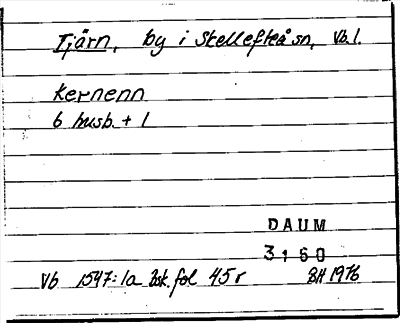 Tjärn, by i Skellefteå sn, Vb.l.
Kernenn
6 husb. + 1
DAUM
3160
Vb 1547:1a Bsk. fol 45 r BH 1976